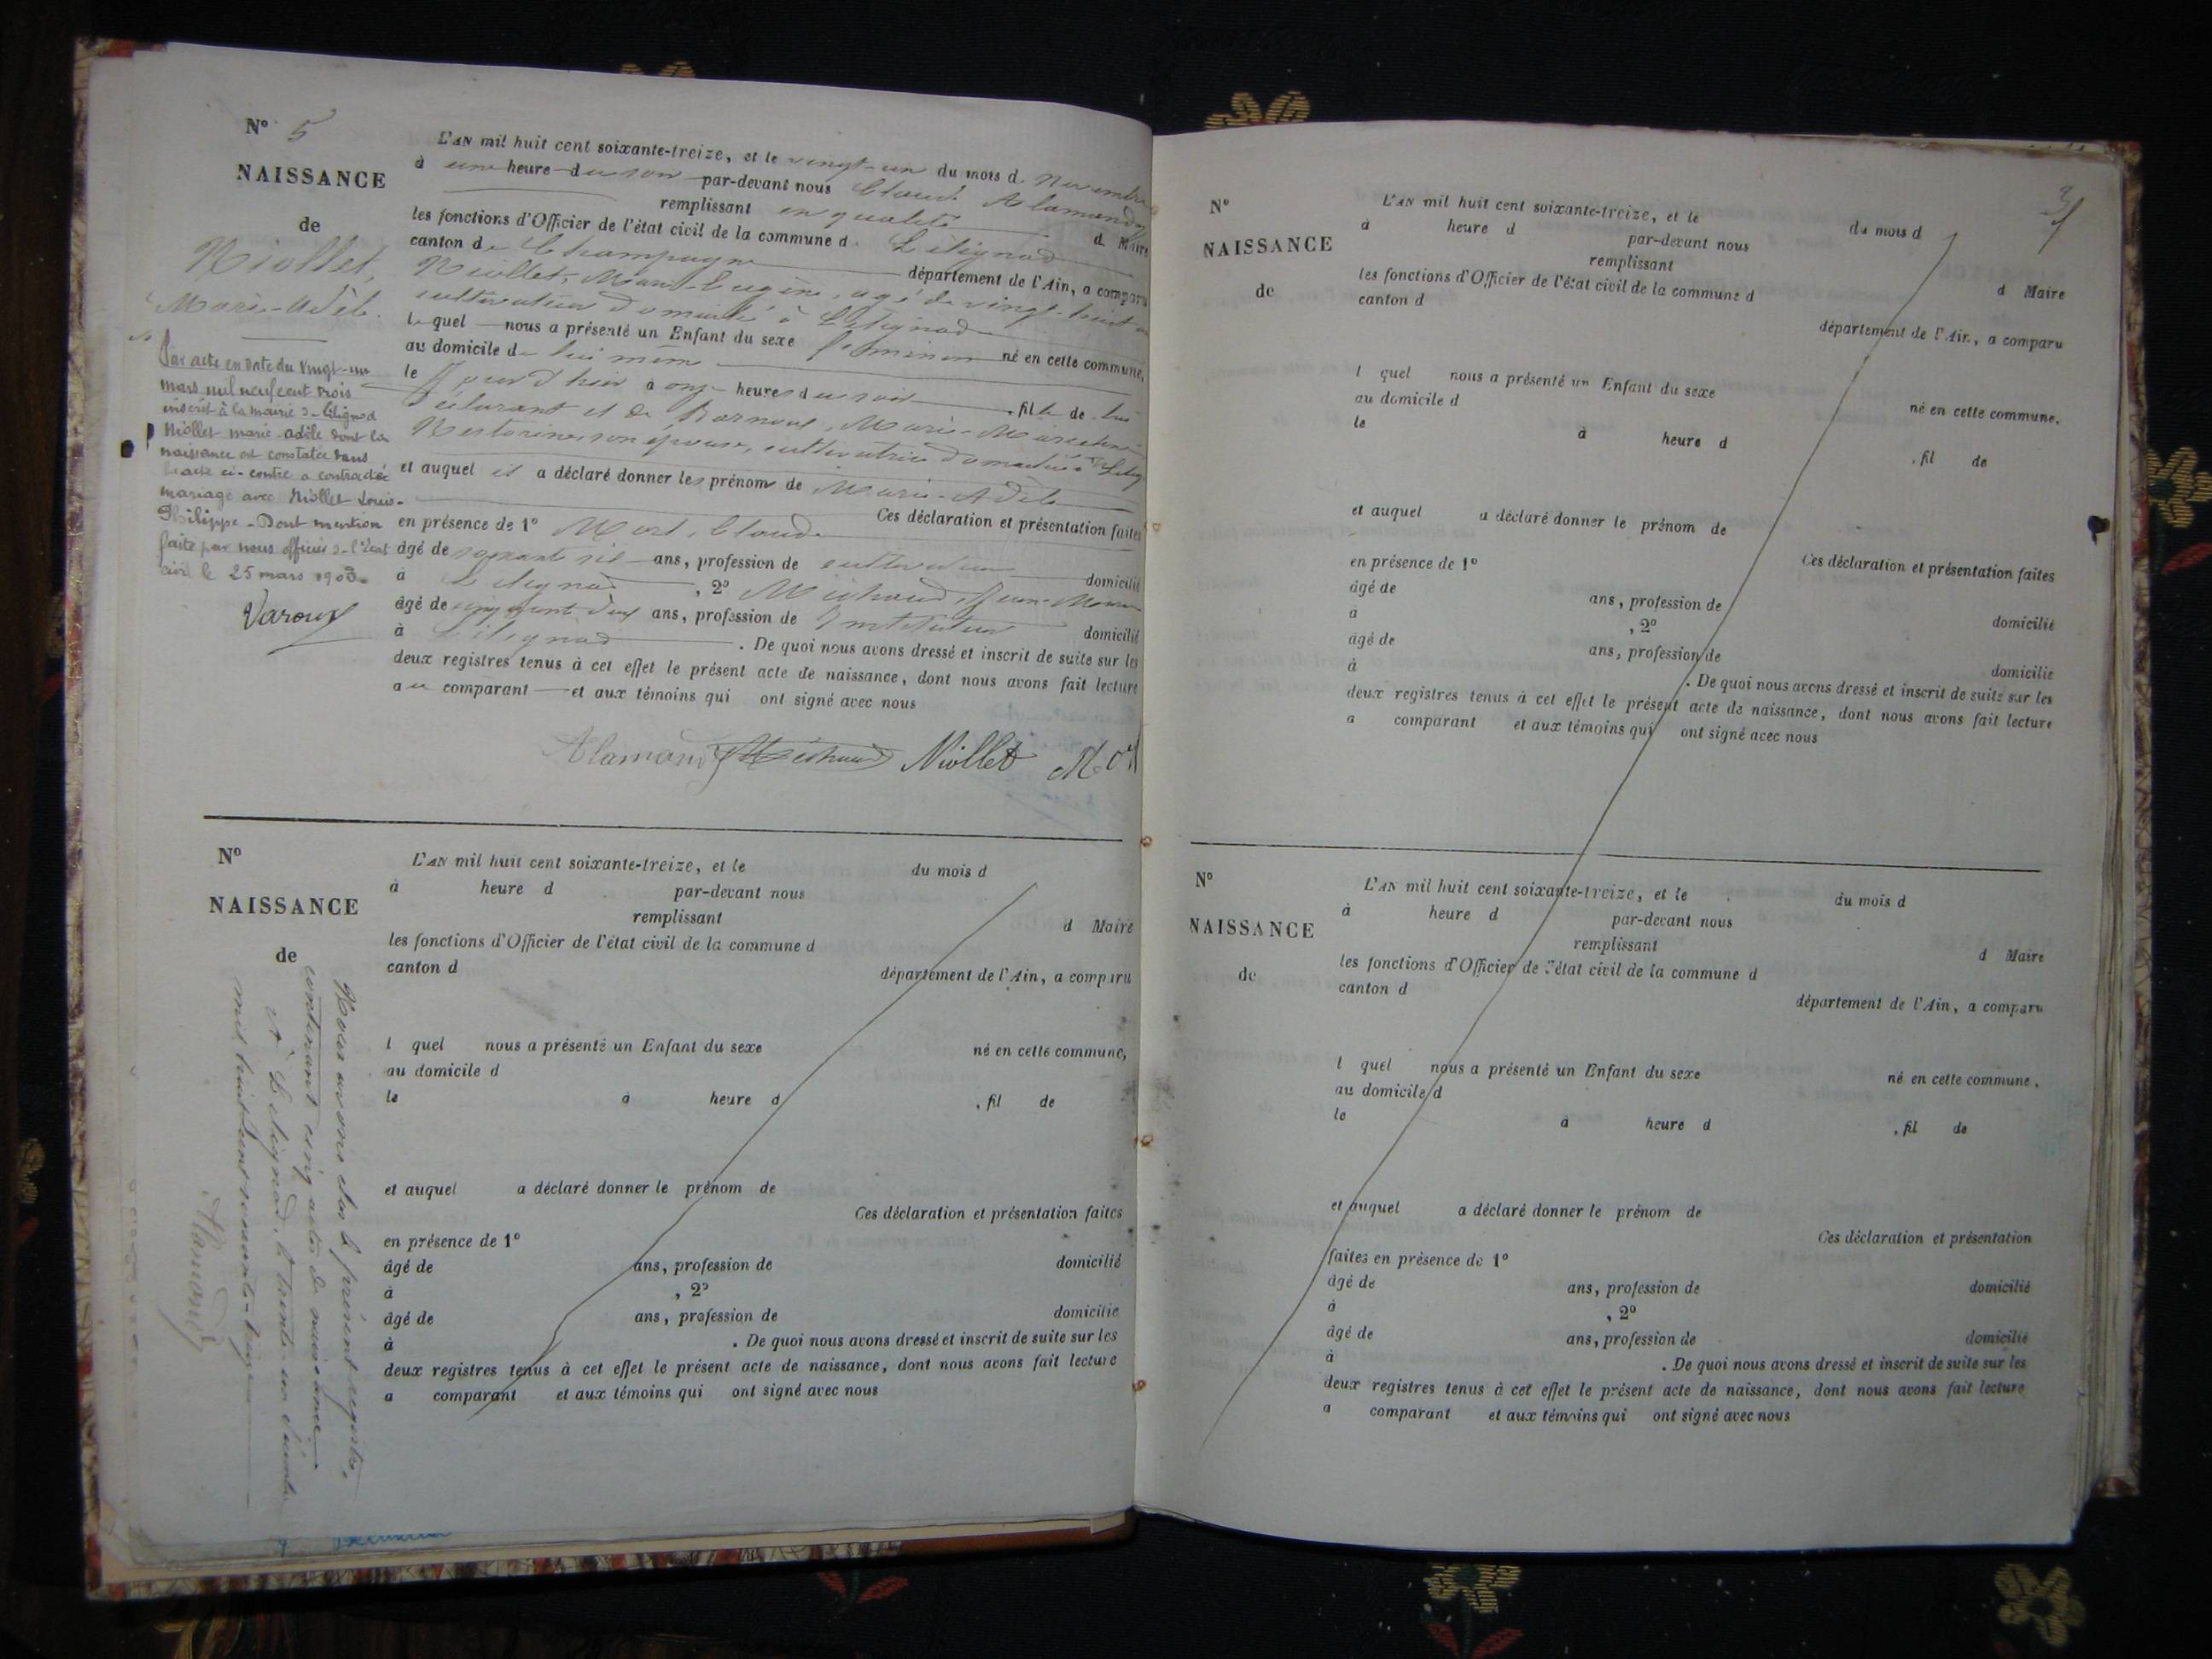 N° 5
NAISSANCE
de
Niollet,
Marie-Adèle.
Par acte en date du vingt-un
mars mil neuf cent trois
inscrit à la mairie de Lilignod
Niollet marie-adèle dont la
naissance est constatée dans
l'acte ci-contre a contracté
mariage avec Niollet Louis-
Philippe. Dont mention
faite par nous officier de l'état
civil le 25 mars 1903.
Varoux
L'AN mil huit cent soixante-treize, et le vingt-un du mois de Novembre
à une heure du soir par-devant nous Claude Alamand
remplissant en qualité d Maire
les fonctions d'Officier de l'état civil de la commune d Lilignod
canton de Champagne département de l'Ain, a comparu
Niollet, Marin-Eugène, âgé de vingt-huit
cultivateur domicilié à Lilignod
lequel nous a présenté un Enfant du sexe féminin né en cette commune,
au domicile de lui même
le jour d'hier à onze heures du soir, fille de lui
déclarant et de Marie
son épouse, cultivatrice domiciliée à
et auquel il a déclaré donner les prénoms de Marie-Adèle
Ces déclaration et présentation faites
en présence de 1° Mort, Claude
âgé de soixante six ans, profession de cultivateur domicilié
à Lilignod, 2° Michaud, Jean
âgé de cinquante deux ans, profession de Instituteur domicilié
à Lilignod. De quoi nous avons dressé et inscrit de suite sur les
deux registres tenus à cet effet le présent acte de naissance, dont nous avons fait lecture
au comparant et aux témoins qui ont signé avec nous
Alamand Michaud Niollet Mort
N°
NAISSANCE
de
L'AN mil huit cent soixante-treize, et le du mois d
à heure d par-devant nous
remplissant d Maire
les fonctions d'Officier de l'état civil de la commune d
canton d département de l'Ain, a comparu
l quel nous a présenté un Enfant du sexe né en cette commune,
au domicile d
le à heure d , fil de
et auquel a déclaré donner le prénom de
Ces déclaration et présentation faites
en présence de 1°
âgé de ans, profession de domicilié
à , 2°
âgé de ans, profession de domicilié
à . De quoi nous avons dressé et inscrit de suite sur les
deux registres tenus à cet effet le présent acte de naissance, dont nous avons fait lecture
a comparant et aux témoins qui ont signé avec nous
Nous avons clos le présent registre,
contenant cinq actes de naissance
A Lilignod, le trente-un décembre
mil huit cent soixante-treize
Alamand
N°
NAISSANCE
de
L'AN mil huit cent soixante-treize, et le du mois d
à heure d par-devant nous
remplissant d Maire
les fonctions d'Officier de l'état civil de la commune d
canton d département de l'Ain, a comparu
l quel nous a présenté un Enfant du sexe né en cette commune.
au domicile d
le à heure d , fil de
et auquel a déclaré donner le prénom de
Ces déclaration et présentation faites
en présence de 1°
âgé de ans, profession de domicilié
à , 2°
âgé de ans, profession de domicilié
à . De quoi nous avons dressé et inscrit de suite sur les
deux registres tenus à cet effet le présent acte de naissance, dont nous avons fait lecture
a comparant et aux témoins qui ont signé avec nous
N°
NAISSANCE
de
L'AN mil huit cent soixante-treize, et le du mois d
à heure d par-devant nous
remplissant d Maire
les fonctions d'Officier de l'état civil de la commune d
canton d département de l'Ain, a comparu
l quel nous a présenté un Enfant du sexe né en cette commune.
au domicile d
le à heure d , fil de
et auquel a déclaré donner le prénom de
Ces déclaration et présentation
faites en présence de 1°
âgé de ans, profession de domicilié
à , 2°
âgé de ans, profession de domicilié
à . De quoi nous avons dressé et inscrit de suite sur les
deux registres tenus à cet effet le présent acte de naissance, dont nous avons fait lecture
a comparant et aux témoins qui ont signé avec nous